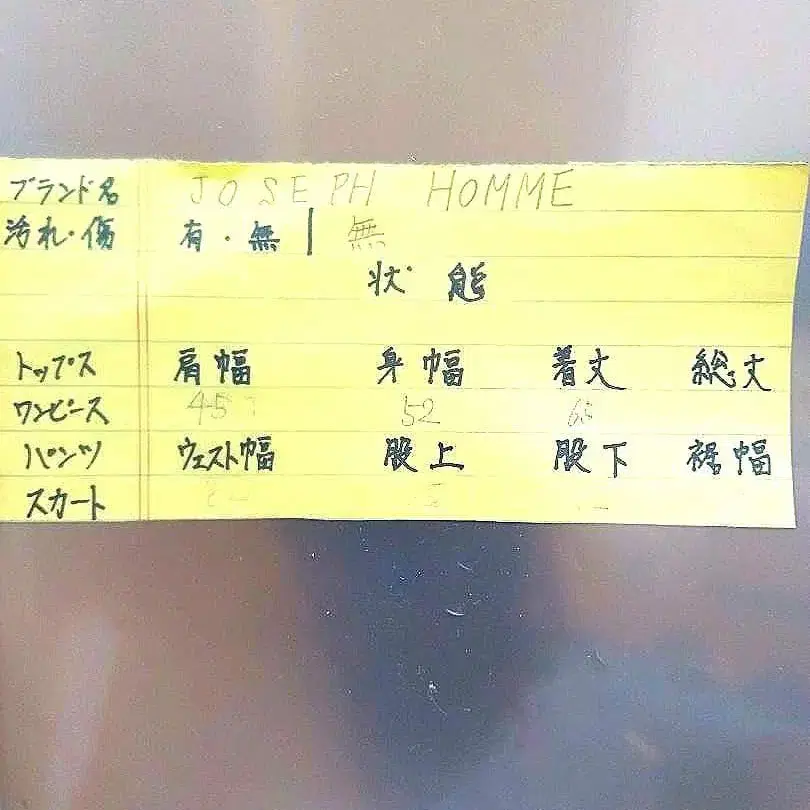 ブランド名 JOSEPH HOMME
汚れ・傷 有・無 | 無
状態
トップス 肩幅 身幅 着丈 総丈
ワンピース 45 52
パンツ ウェスト幅 股上 股下 裾幅
スカート